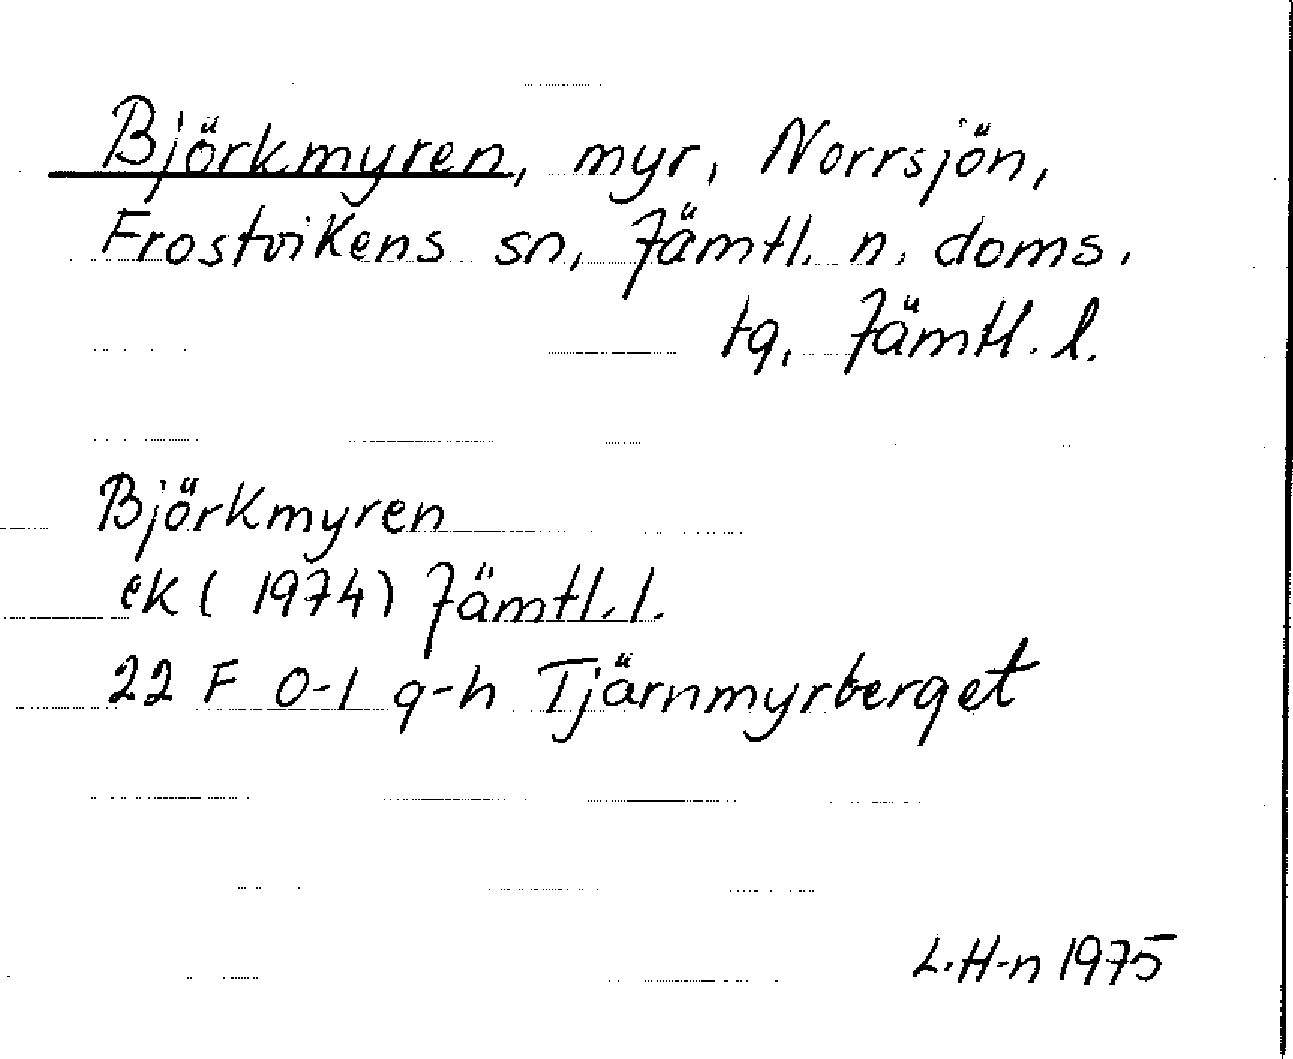 Björkmyren, myr, Norrsjön,
Frostvikens sn, Jämtl. n. doms.
tg, Jämtl. l.
Björkmyren
ek (1974) Jämtl. l.
22 F 0-1 g-h Tjärnmyrberget
L. H-n 1975